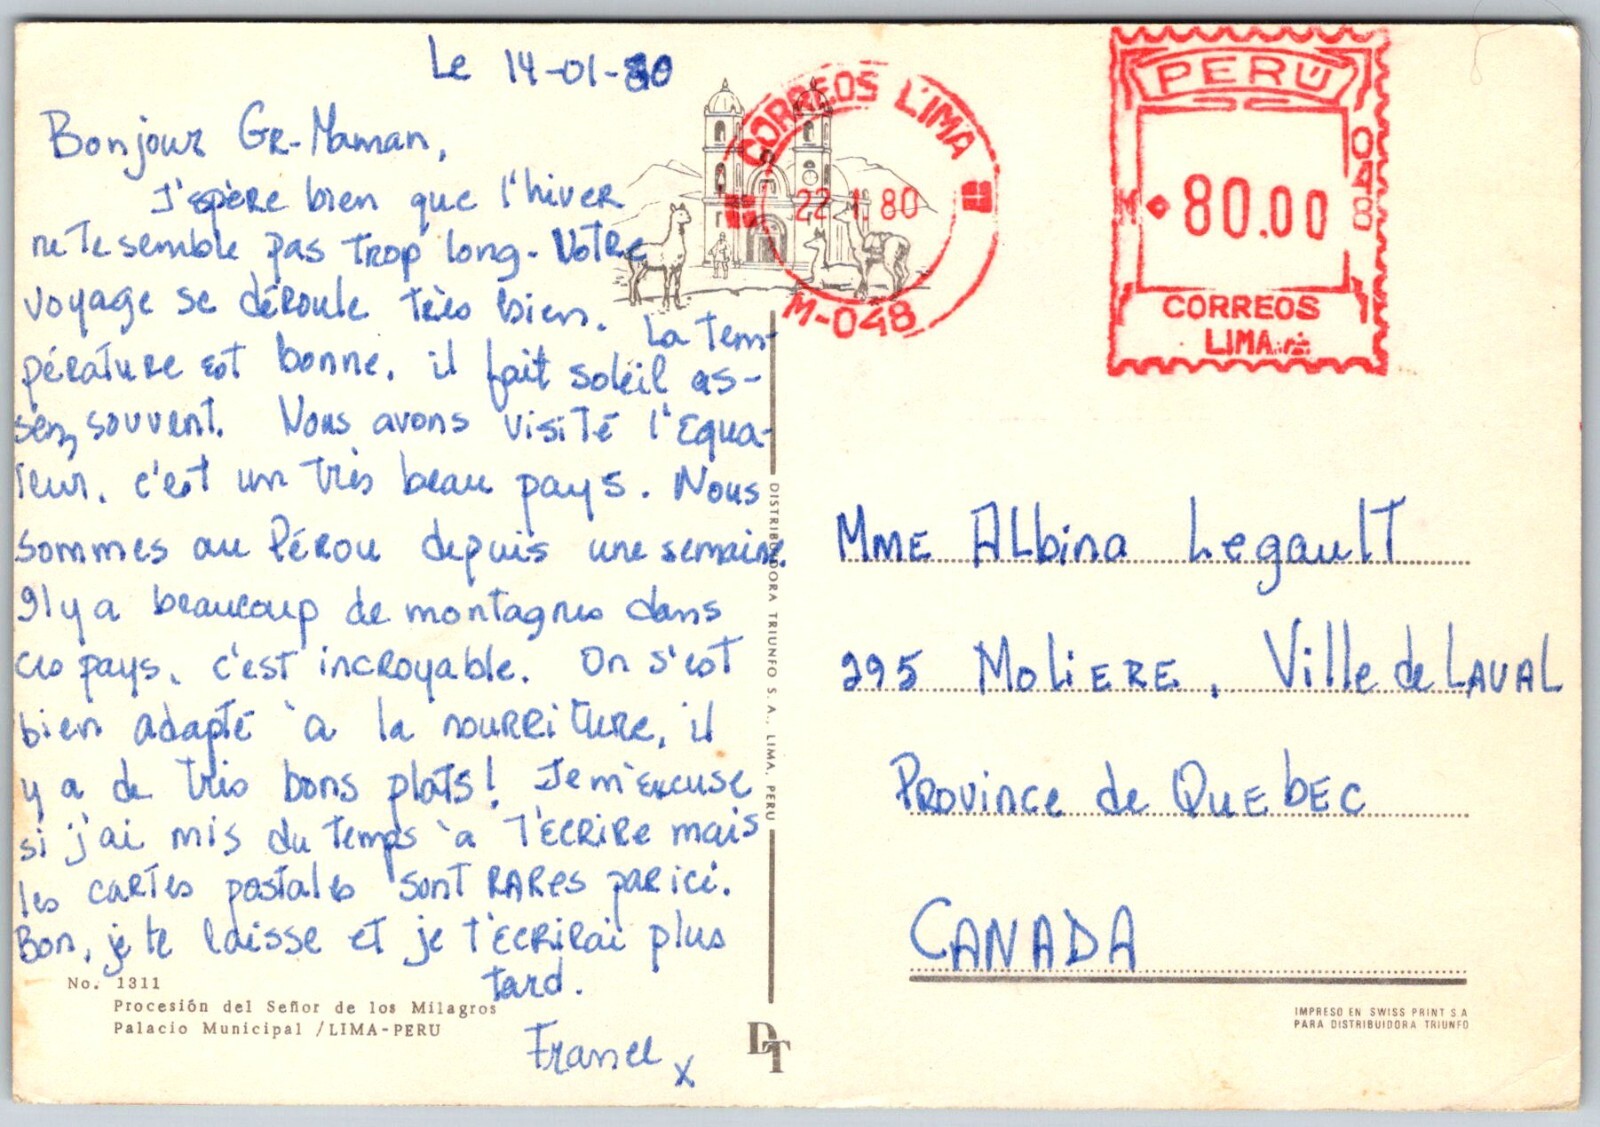 Le 14-01-80
Bonjour Gr-Maman,
J'espère bien que l'hiver
ne te semble pas trop long. Votre
voyage se déroule très bien. La tem-
pérature est bonne, il fait soleil as-
sez souvent. Nous avons visité l'Equa-
teur, c'est un très beau pays. Nous
sommes au Pérou depuis une semaine.
Il y a beaucoup de montagnes dans
ces pays, c'est incroyable. On s'est
bien adapté à la nourriture, il
y a de très bons plats! Je m'excuse
si j'ai mis du temps à t'écrire mais
les cartes postales sont rares par ici.
Bon, je te laisse et je t'écrirai plus
tard.
France x
No. 1311
Procesión del Señor de los Milagros
Palacio Municipal / LIMA-PERU
DISTRIBUIDORA TRIUNFO S.A., LIMA, PERU
DT
CORREOS LIMA
22 1 80
M-048
PERÚ
M 80.00
048
CORREOS
LIMA
Mme Albina Legault
295 Moliere, Ville de Laval
Province de Quebec
CANADA
IMPRESO EN SWISS PRINT S A
PARA DISTRIBUIDORA TRIUNFO